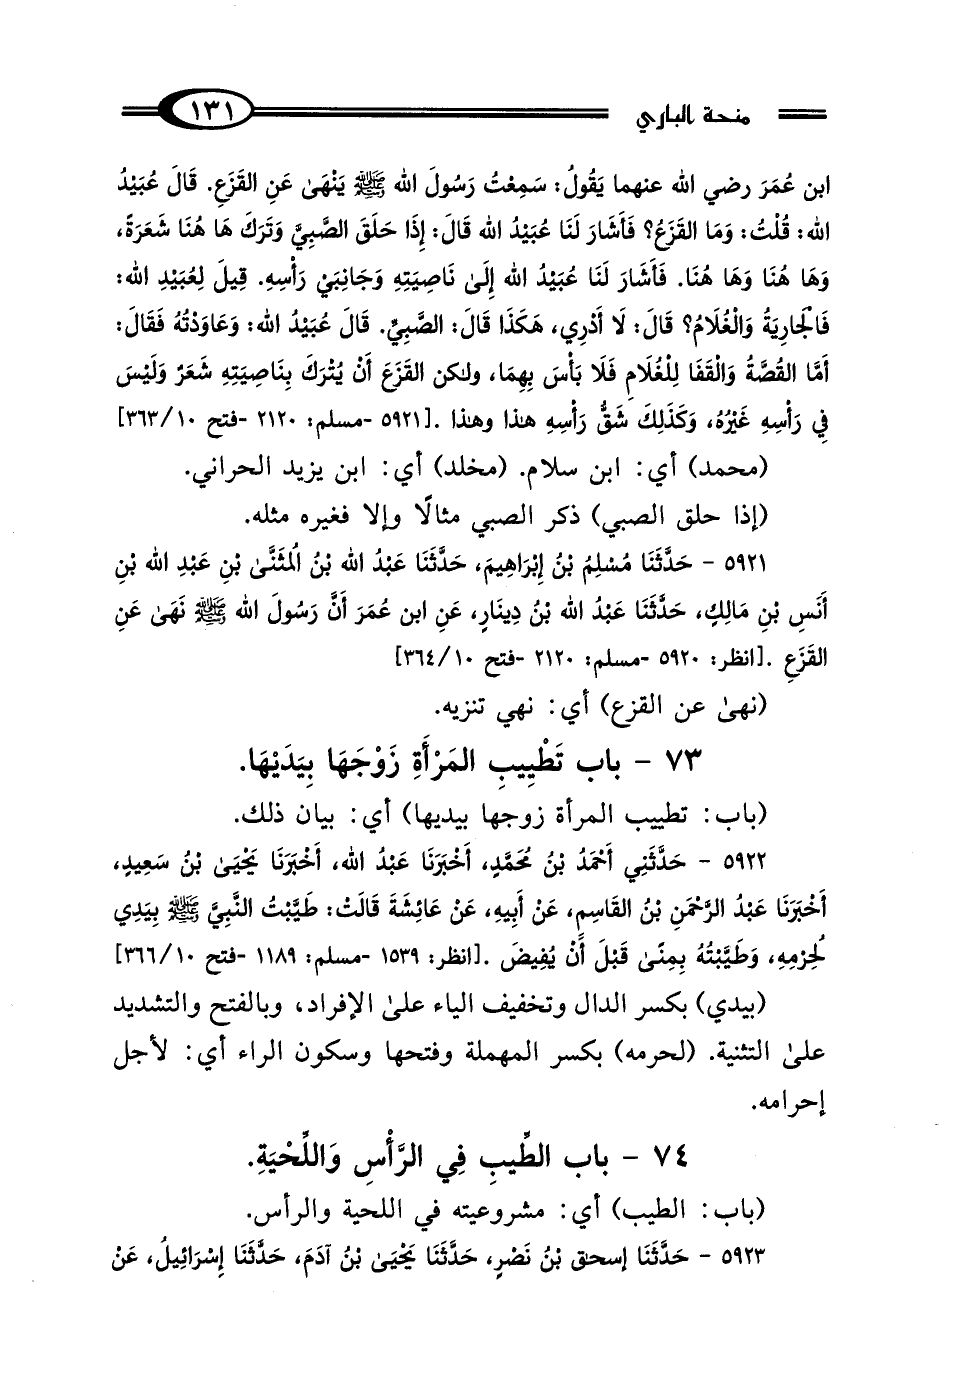 منحة الباري ١٣١
ابن عُمَرَ رضي الله عنهما يَقُولُ: سَمِعْتُ رَسُولَ الله ﷺ يَنْهَىٰ عَنِ القَزَعِ. قَالَ عُبَيْدُ
الله: قُلْتُ: وَمَا القَزَعُ؟ فَأَشَارَ لَنَا عُبَيْدُ الله قَالَ: إِذَا حَلَقَ الصَّبِيَّ وَتَرَكَ هَا هُنَا شَعَرَةً،
وَهَا هُنَا وَهَا هُنَا. فَأَشَارَ لَنَا عُبَيْدُ الله إِلَىٰ نَاصِيَتِهِ وَجَانِبَيْ رَأْسِهِ. قِيلَ لِعُبَيْدِ الله:
فَالْجَارِيَةُ وَالْغُلَامُ؟ قَالَ: لَا أَدْرِي، هَكَذَا قَالَ: الصَّبِيِّ. قَالَ عُبَيْدُ الله: وَعَاوَدْتُهُ فَقَالَ:
أَمَّا القُصَّةُ وَالْقَفَا لِلْغُلَامِ فَلَا بَأْسَ بِهِمَا، ولكن القَزَعَ أَنْ يُتْرَكَ بِنَاصِيَتِهِ شَعَرٌ وَلَيْسَ
فِي رَأْسِهِ غَيْرُهُ، وَكَذَلِكَ شَقُّ رَأْسِهِ هذا وهذا .[٥٩٢١ -مسلم: ٢١٢٠ -فتح ١٠/ ٣٦٣]
(محمد) أي: ابن سلام. (مخلد) أي: ابن يزيد الحراني.
(إذا حلق الصبي) ذكر الصبي مثالًا وإلا فغيره مثله.
٥٩٢١ - حَدَّثَنَا مُسْلِمُ بْنُ إِبْرَاهِيمَ، حَدَّثَنَا عَبْدُ الله بْنُ الْمُثَنَّىٰ بْنِ عَبْدِ الله بْنِ
أَنَسِ بْنِ مَالِكٍ، حَدَّثَنَا عَبْدُ الله بْنُ دِينَارٍ، عَنِ ابن عُمَرَ أَنَّ رَسُولَ الله ﷺ نَهَىٰ عَنِ
القَزَعِ .[انظر: ٥٩٢٠ -مسلم: ٢١٢٠ -فتح ١٠/ ٣٦٤]
(نهىٰ عن القزع) أي: نهي تنزيه.
٧٣ - باب تَطْيِيبِ المَرْأَةِ زَوْجَهَا بِيَدَيْهَا.
(باب: تطييب المرأة زوجها بيديها) أي: بيان ذلك.
٥٩٢٢ - حَدَّثَنِي أَحْمَدُ بْنُ مُحَمَّدٍ، أَخْبَرَنَا عَبْدُ الله، أَخْبَرَنَا يَحْيَىٰ بْنُ سَعِيدٍ،
أَخْبَرَنَا عَبْدُ الرَّحْمَنِ بْنُ القَاسِمِ، عَنْ أَبِيهِ، عَنْ عَائِشَةَ قَالَتْ: طَيَّبْتُ النَّبِيَّ ﷺ بِيَدِي
لِحُرْمِهِ، وَطَيَّبْتُهُ بِمِنًىٰ قَبْلَ أَنْ يُفِيضَ .[انظر: ١٥٣٩ -مسلم: ١١٨٩ -فتح ١٠/ ٣٦٦]
(بيدي) بكسر الدال وتخفيف الياء علىٰ الإفراد، وبالفتح والتشديد
علىٰ التثنية. (لحرمه) بكسر المهملة وفتحها وسكون الراء أي: لأجل
إحرامه.
٧٤ - باب الطِّيبِ فِي الرَّأْسِ وَاللِّحْيَةِ.
(باب: الطيب) أي: مشروعيته في اللحية والرأس.
٥٩٢٣ - حَدَّثَنَا إسحق بْنُ نَصْرٍ، حَدَّثَنَا يَحْيَىٰ بْنُ آدَمَ، حَدَّثَنَا إِسْرَائِيلُ، عَنْ